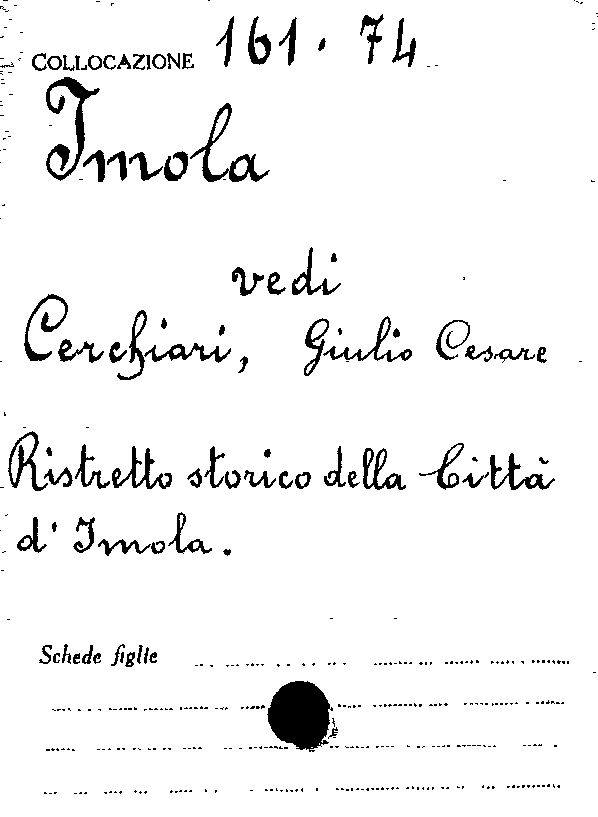 COLLOCAZIONE 161. 74
Imola
vedi
Cerchiari, Giulio Cesare
Ristretto storico della Città
d' Imola.
Schede figlie